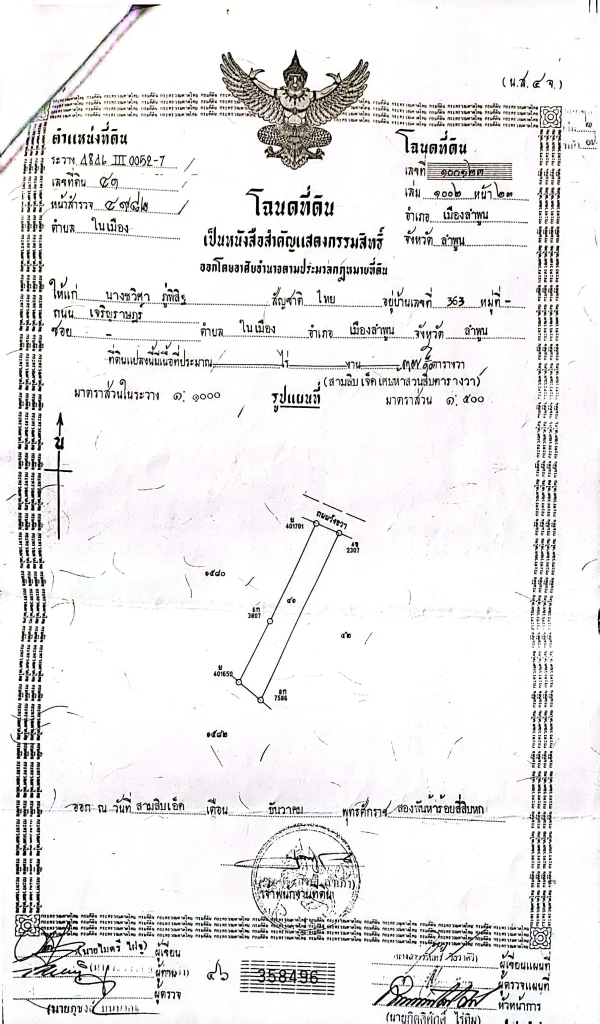 (น.ส.๔ จ.)
ตำแหน่งที่ดิน
ระวาง 4846 III 0052-7
เลขที่ดิน ๔๑
หน้าสำรวจ
ตำบล ในเมือง
โฉนดที่ดิน
เลขที่ ๑๐๐๑๒๓
เล่ม ๑๐๐๒ หน้า ๒๓
อำเภอ เมืองลำพูน
จังหวัด ลำพูน
โฉนดที่ดิน
เป็นหนังสือสำคัญแสดงกรรมสิทธิ์
ออกโดยอาศัยอำนาจตามประมวลกฎหมายที่ดิน
ให้แก่ สัญชาติ ไทย อยู่บ้านเลขที่ 363 หมู่ที่ -
ถนน เจริญราษฎร์
ซอย - ตำบล ในเมือง อำเภอ เมืองลำพูน จังหวัด ลำพูน
ที่ดินแปลงนี้มีเนื้อที่ประมาณ ไร่ งาน ตารางวา
(สามสิบเจ็ดเศษห้าส่วนสิบตารางวา)
มาตราส่วนในระวาง ๑: ๑๐๐๐ รูปแผนที่ มาตราส่วน ๑: ๕๐๐
น
ถนนวังขวา
401701
2307
๑๕๘๐
๔๑
3807
๔๒
401650
7586
๑๕๘๒
ออก ณ วันที่ สามสิบเอ็ด เดือน ธันวาคม พุทธศักราช สองพันห้าร้อยสี่สิบหก
เจ้าพนักงานที่ดิน
ผู้เขียน
ผู้ทาน
ผู้ตรวจ
358496
ผู้เขียนแผนที่
ผู้ตรวจแผนที่
หัวหน้าการ